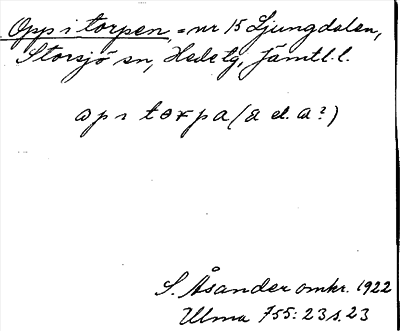 Opp i torpen, = nr 15 Ljungdalen,
Storsjö sn, Hede tg, Jämtl. l.
op ı torpa (a el. a?)
S. Åsander omkr. 1922
Ulma 755: 23 s. 23